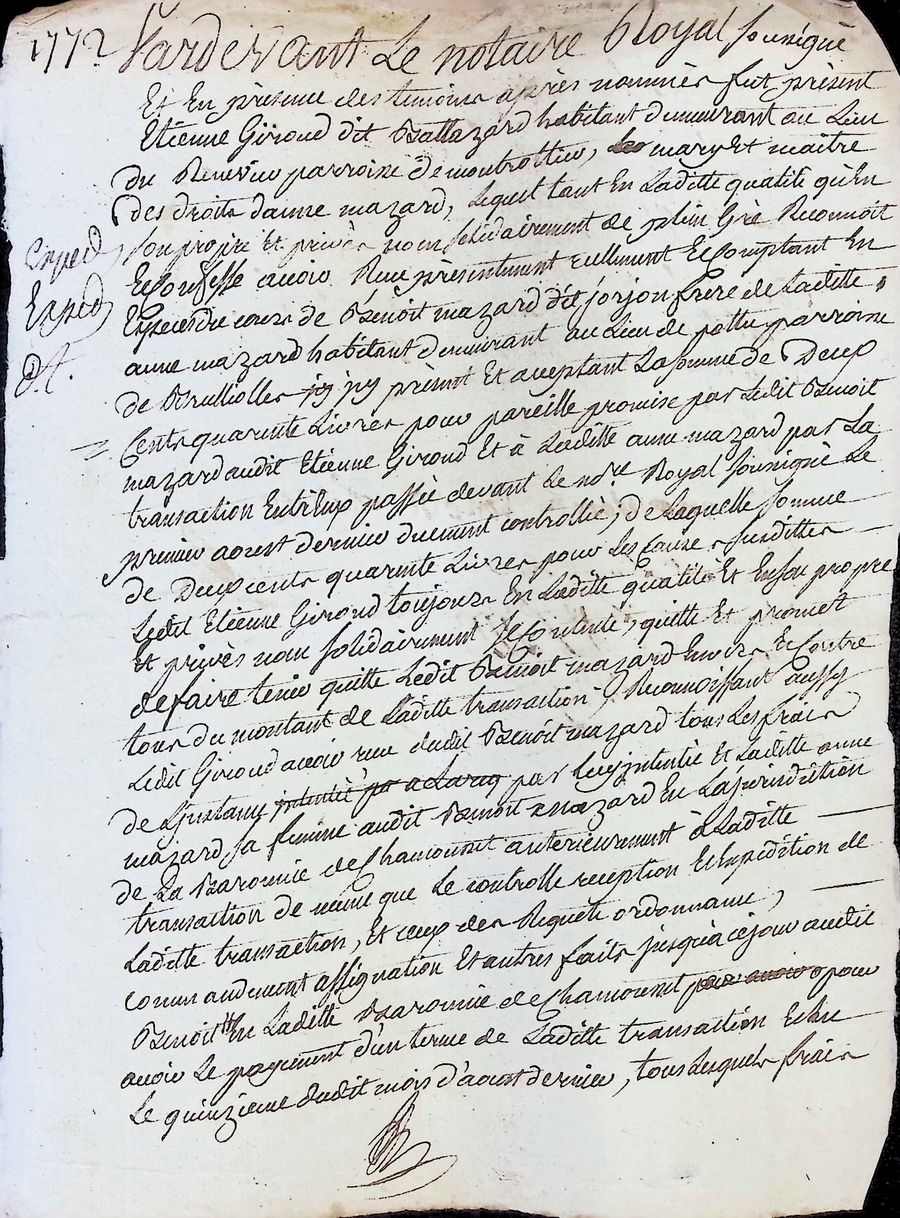 1772 Pardevant Le notaire Royal sousigné
Et En présence des temoins après nommés fut présent
Etienne Giroud dit Baltazard habitant demeurant au Lieu
du Renevier parroisse de montrottier, mary Et maitre
des droits danne mazard, Lequel tant En Laditte qualité qu'En
son propre Et privés nom solidairement de plein Gré Reconnoit
Exped
Et Confesse avoir Reçu présentement réellement Et Comptant En
Exped
Especes du cours de Benoit mazard dit jorjon frere de Laditte
anne mazard habitant demeurant au Lieu de parroisse
dt.
de Brulliolles jcy présent Et aceptant La somme de Deux
Cents quarente Livres pour pareille promise par Ledit Benoit
mazard audit Etienne Giroud Et à Laditte anne mazard par La
transaction Entr'Eux passée devant Le nore Royal sousigné Le
premier aoust dernier duement controllée; de Laquelle somme
de Deux cents quarente Livres pour Les Causes susdittes
Ledit Etienne Giroud toujours En Laditte qualité Et En son propre
Et privés nom solidairement se Contente, quitte Et promet
de faire tenir quitte Ledit Benoit mazard Envers Et Contre
tous du montant de Laditte transaction, Reconnoissant aussy
Ledit Giroud avoir reçu dudit Benoit mazard tous Les frais
de L'justance jntentée par Luy jntentée Et Laditte anne
mazard sa femme audit Benoit mazard En La jurisdiction
de La Baronnie de Chamousset anterieurement à Laditte
transaction de même que Le controlle reception Et Expédition de
Laditte transaction, Et ceux des Requete ordonnance,
commandement assignation Et autres faits jusqu'a ce jour audit
Benoit En Laditte Baronnie de Chamousset pour avoir pour
avoir Le payement d'un terme de Laditte transaction Echu
Le quinzieme dudit mois d'aoust dernier, tous Lesquels frais